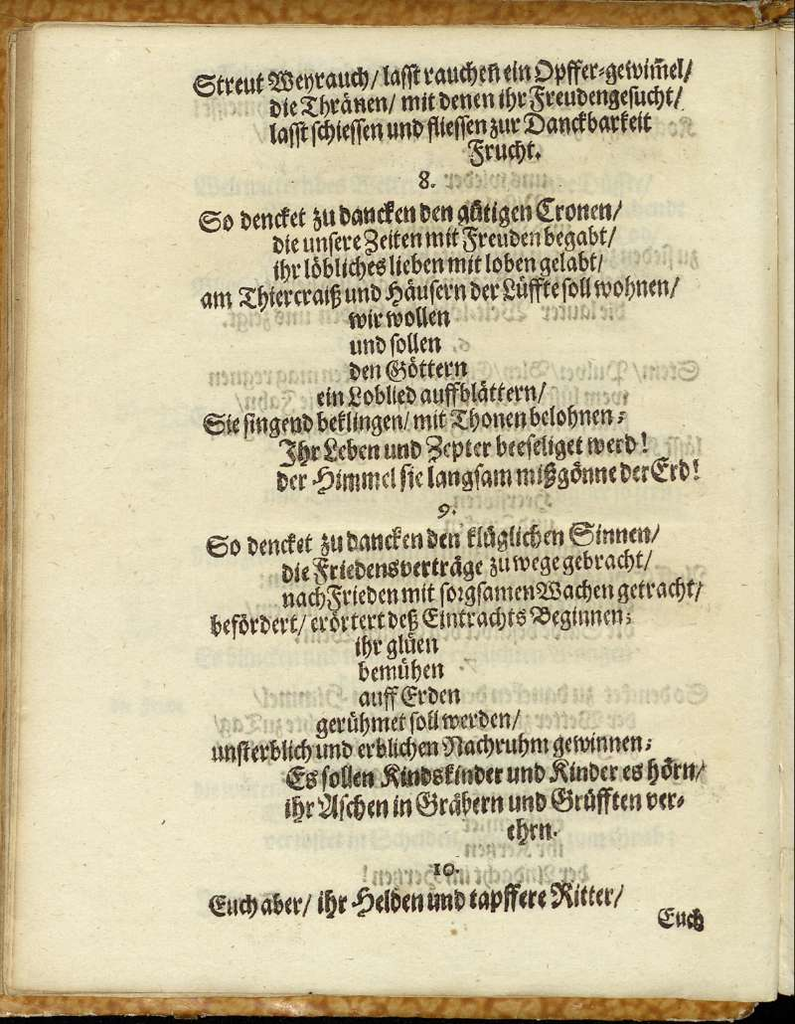 Streut Weyrauch/ lasst rauchen̄ ein Opffer-gewim̄el/
die Thränen/ mit denen ihr Freudengesucht/
lasst schiessen und fliessen zur Danckbarkeit
Frucht.
8.
So dencket zu dancken den gütigen Cronen/
die unsere Zeiten mit Freuden begabt/
ihr löbliches lieben mit loben gelabt/
am Thiercraiß und Häusern der Lüffte soll wohnen/
wir wollen
und sollen
den Göttern
ein Loblied auffblättern/
Sie singend beklingen/ mit Thonen belohnen;
Ihr Leben und Zepter beeseliget werd!
der Himmel sie langsam mißgönne der Erd!
9.
So dencket zu dancken den klüglichen Sinnen/
die Friedensverträge zu wege gebracht/
nach Frieden mit sorgsamen Wachen getracht/
befördert/ erörtert deß Eintrachts Beginnen;
ihr glüen
bemühen
auff Erden
gerühmet soll werden/
unsterblich und erblichen Nachruhm gewinnen;
Es sollen Kindskinder und Kinder es hörn/
ihr Aschen in Gräbern und Grüfften ver-
ehrn.
10.
Euch aber/ ihr Helden und tapffere Ritter/
Euch